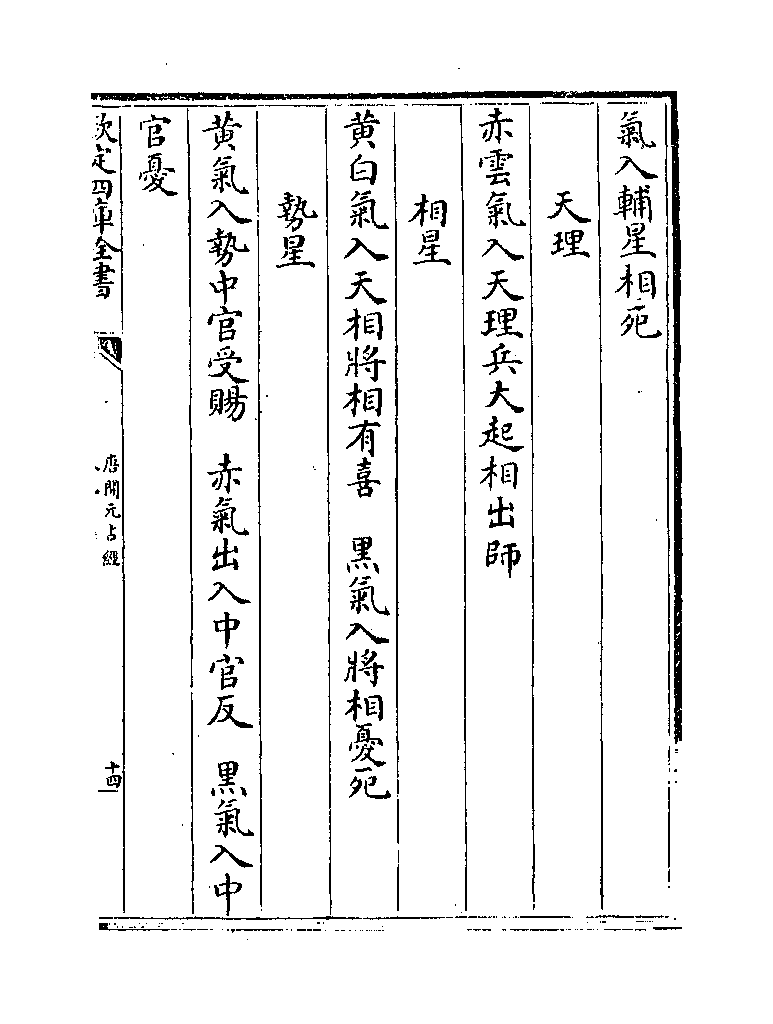 氣入輔星相死
天理
赤雲氣入天理兵大起相出師
相星
黄白氣入天相將相有喜　黑氣入將相憂死
勢星
黄氣入勢中官受賜　赤氣出入中官反　黑氣入中
官憂
欽定四庫全書
唐開元占經
十四